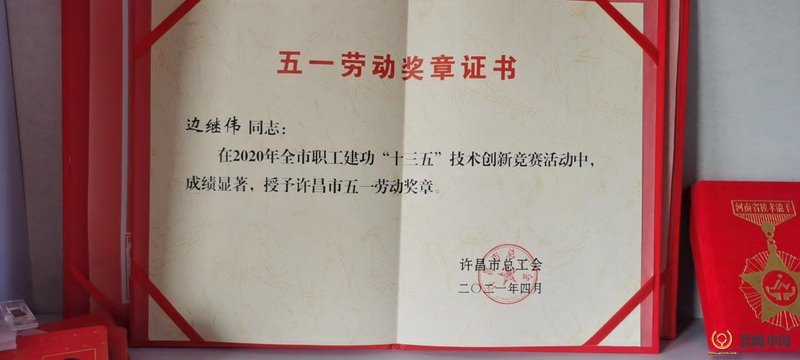 五一劳动奖章证书
边继伟 同志：
在2020年全市职工建功“十三五”技术创新竞赛活动中，
成绩显著，授予许昌市五一劳动奖章。
许昌市总工会
二〇二一年四月
河南省技术能手